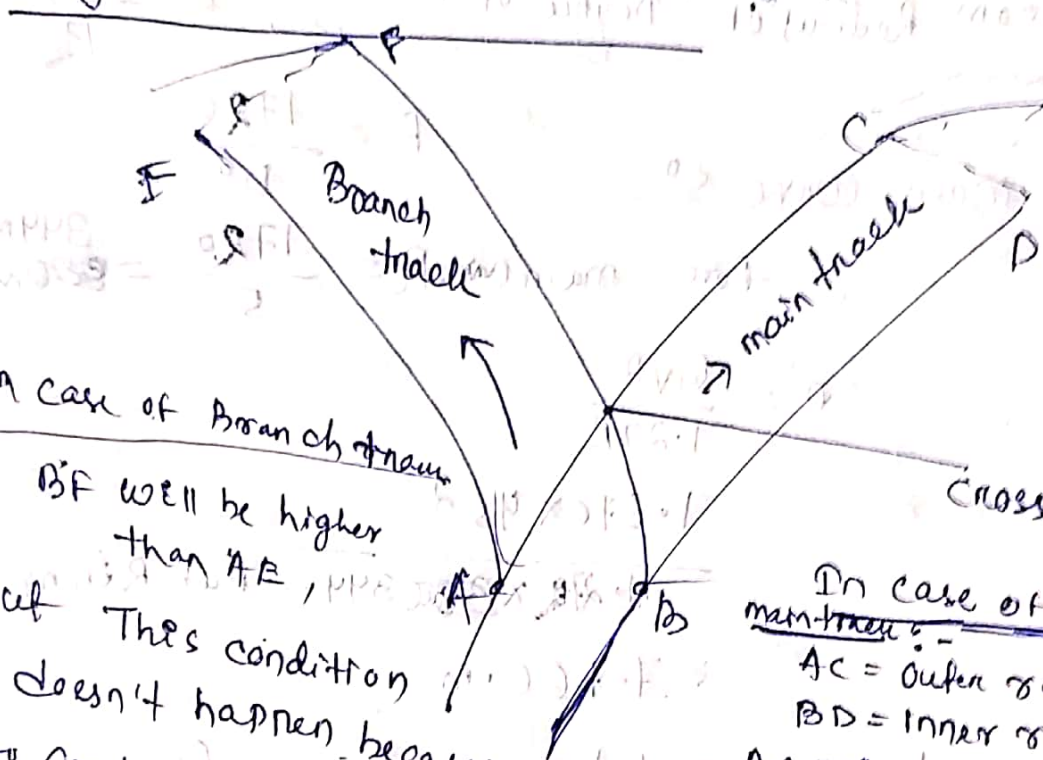 F
E
Branch
track
C
main track
D
case of Branch track
BF will be higher
than AE,
This condition
doesn't happen
A
B
Cross
In case of
main track :-
AC = Outer r
BD = Inner r